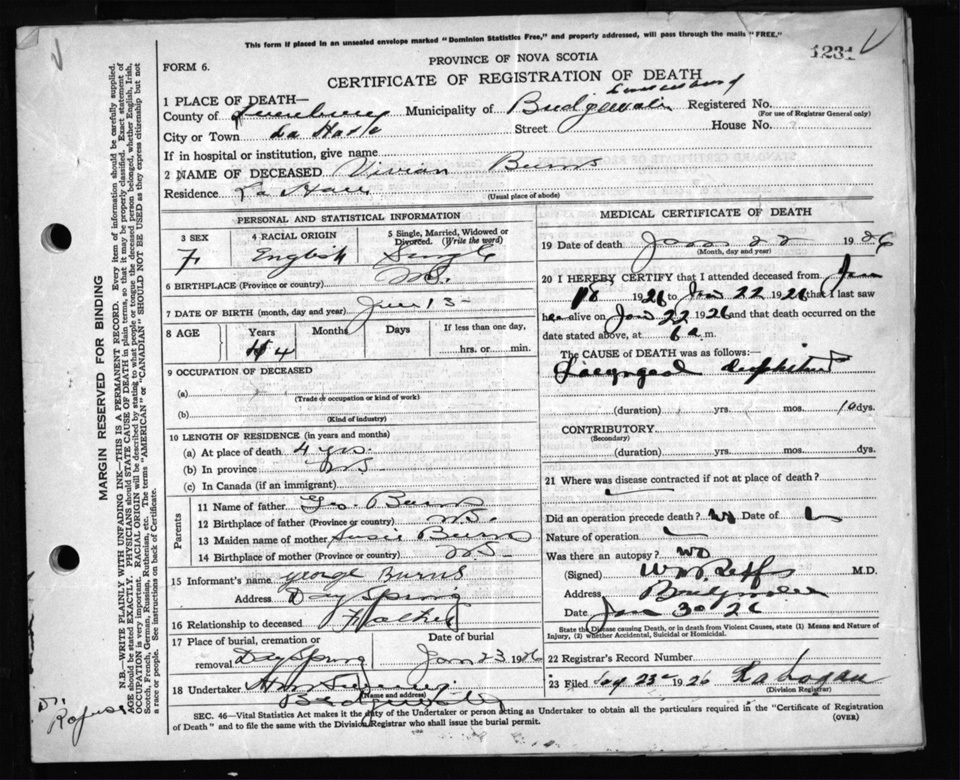 This form if placed in an unsealed envelope marked "Dominion Statistics Free," and properly addressed, will pass through the mails "FREE."
1231
FORM 6.
PROVINCE OF NOVA SCOTIA
CERTIFICATE OF REGISTRATION OF DEATH
1 PLACE OF DEATH—
Lunenburg
County of Lunenburg Municipality of Bridgewater Registered No.
(For use of Registrar General only)
City or Town La Have Street House No.
If in hospital or institution, give name
2 NAME OF DECEASED Vivian Burns
Residence La Have
(Usual place of abode)
PERSONAL AND STATISTICAL INFORMATION
3 SEX F
4 RACIAL ORIGIN English
5 Single, Married, Widowed or Divorced. (Write the word) Single
6 BIRTHPLACE (Province or country) N.S.
7 DATE OF BIRTH (month, day and year) June 13
8 AGE Years 4 Months Days If less than one day, hrs. or min.
9 OCCUPATION OF DECEASED
(a)
(Trade or occupation or kind of work)
(b)
(Kind of industry)
10 LENGTH OF RESIDENCE (in years and months)
(a) At place of death 4 yrs.
(b) In province NS
(c) In Canada (if an immigrant)
Parents
11 Name of father Geo. Burns
12 Birthplace of father (Province or country) NS.
13 Maiden name of mother Susie Burns
14 Birthplace of mother (Province or country) NS
15 Informant's name George Burns
Address Day Spring
16 Relationship to deceased Father
17 Place of burial, cremation or removal Day Spring
Date of burial Jan 23 1926
18 Undertaker
(Name and address)
Bridgewater
MEDICAL CERTIFICATE OF DEATH
19 Date of death Jan 22 1926
(Month, day and year)
20 I HEREBY CERTIFY that I attended deceased from Jan
18 1926 to Jan 22 1926 that I last saw
her alive on Jan 22 1926 and that death occurred on the
date stated above, at 6 a m.
The CAUSE OF DEATH was as follows:
Laryngeal diphtheria
(duration) yrs. mos. 10 dys.
CONTRIBUTORY
(Secondary)
(duration) yrs. mos. dys.
21 Where was disease contracted if not at place of death?
Did an operation precede death? No Date of
Nature of operation
Was there an autopsy? No
(Signed) M.D.
Address Bridgewater
Date Jan 30 26
State the Disease causing Death, or in death from Violent Causes, state (1) Means and Nature of
Injury, (2) whether Accidental, Suicidal or Homicidal.
22 Registrar's Record Number
23 Filed 23 1926 Logan
(Division Registrar)
SEC. 46—Vital Statistics Act makes it the duty of the Undertaker or person acting as Undertaker to obtain all the particulars required in the "Certificate of Registration
of Death" and to file the same with the Division Registrar who shall issue the burial permit.
(OVER)
MARGIN RESERVED FOR BINDING
N.B.—WRITE PLAINLY WITH UNFADING INK—THIS IS A PERMANENT RECORD. Every item of information should be carefully supplied.
AGE should be stated EXACTLY. PHYSICIANS should STATE CAUSE OF DEATH in plain terms, so that it may be properly classified. Exact statement of
OCCUPATION is very important. RACIAL ORIGIN will be described by stating to what people or tongue the deceased person belonged, whether English, Irish,
Scotch, French, German, Russian, Ruthenian, etc. The terms "AMERICAN" or "CANADIAN" SHOULD NOT BE USED as they express citizenship but not
a race or people. See instructions on back of Certificate.
Dr.
Rafuse